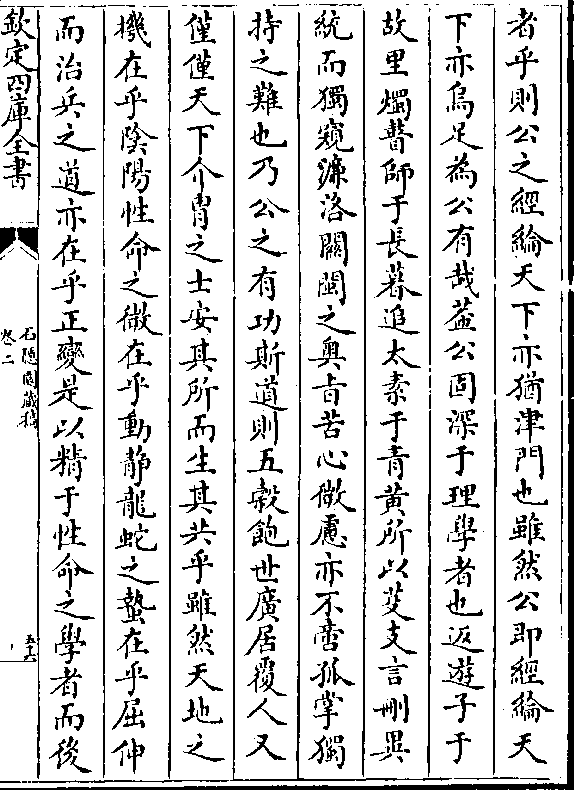 者乎則公之經綸天下亦猶津門也雖然公即經綸天
下亦烏足為公有哉葢公固深于理學者也返遊子于
故里燭瞽師于長暮追太素于青黄所以芟支言刪異
統而獨窺濂洛關閩之奥㫖苦心微慮亦不啻孤掌獨
持之難也乃公之有功斯道則五穀飽世廣居覆人又
僅僅天下介胄之士安其所而生其共乎雖然天地之
機在乎陰陽性命之微在乎動静龍蛇之蟄在乎屈伸
而治兵之道亦在乎正變是以精于性命之學者而後
欽定四庫全書
石隱園藏稿
卷二
五十六